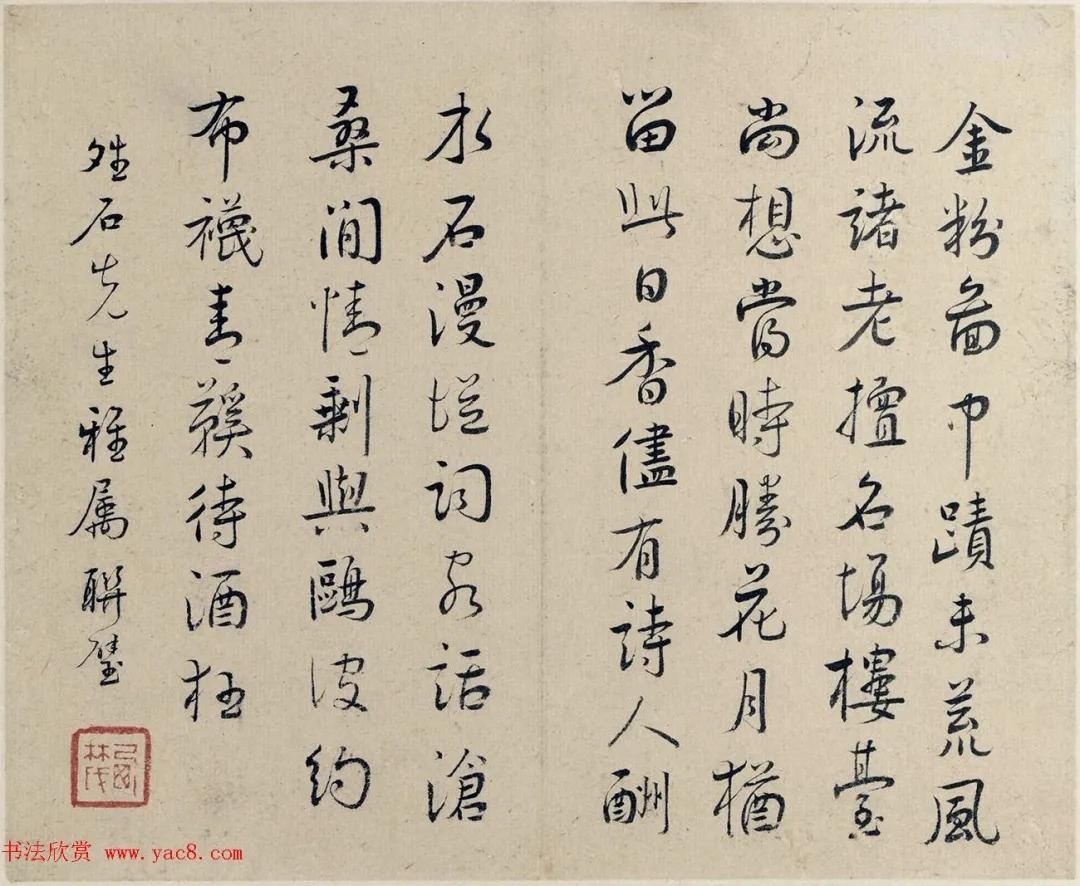 金粉啚中蹟未荒風
流諸老擅名場樓臺
尚想當時勝花月猶
留此日香儘有詩人酬
水石漫從詞客話滄
桑閒情剩與鷗波約
布襪青鞵待酒狂
石先生雅属 聯璧
书法欣赏 www.yac8.com